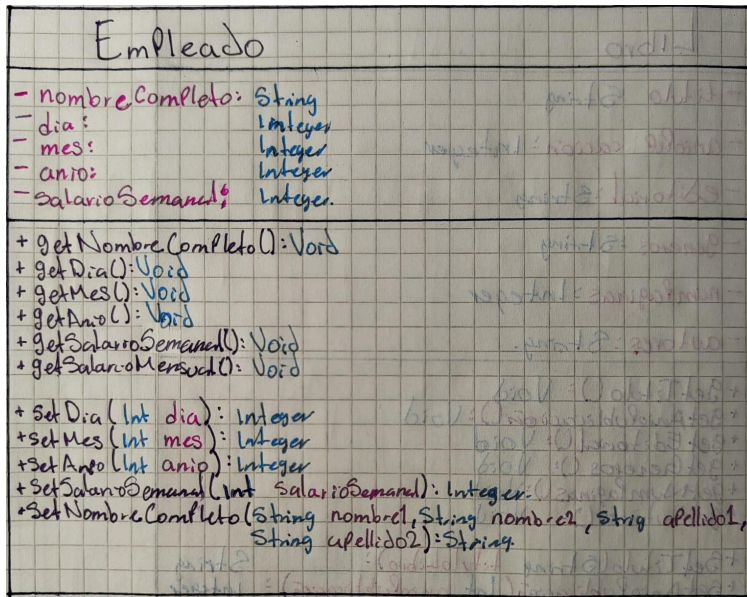 EmPleado
- nombreCompleto: String
- dia: Integer
- mes: Integer
- anio: Integer
- SalarioSemanal: Integer.
+ getNombreCompleto(): Void
+ getDia(): Void
+ getMes(): Void
+ getAnio(): Void
+ getSalarioSemanal(): Void
+ getSalarioMensual(): Void
+ SetDia(Int dia): Integer
+ SetMes(Int mes): Integer
+ SetAnio(Int anio): Integer
+ SetSalarioSemanal(Int SalarioSemanal): Integer.
+ SetNombreCompleto(String nombre1, String nombre2, Strig aPellido1,
String aPellido2): String.